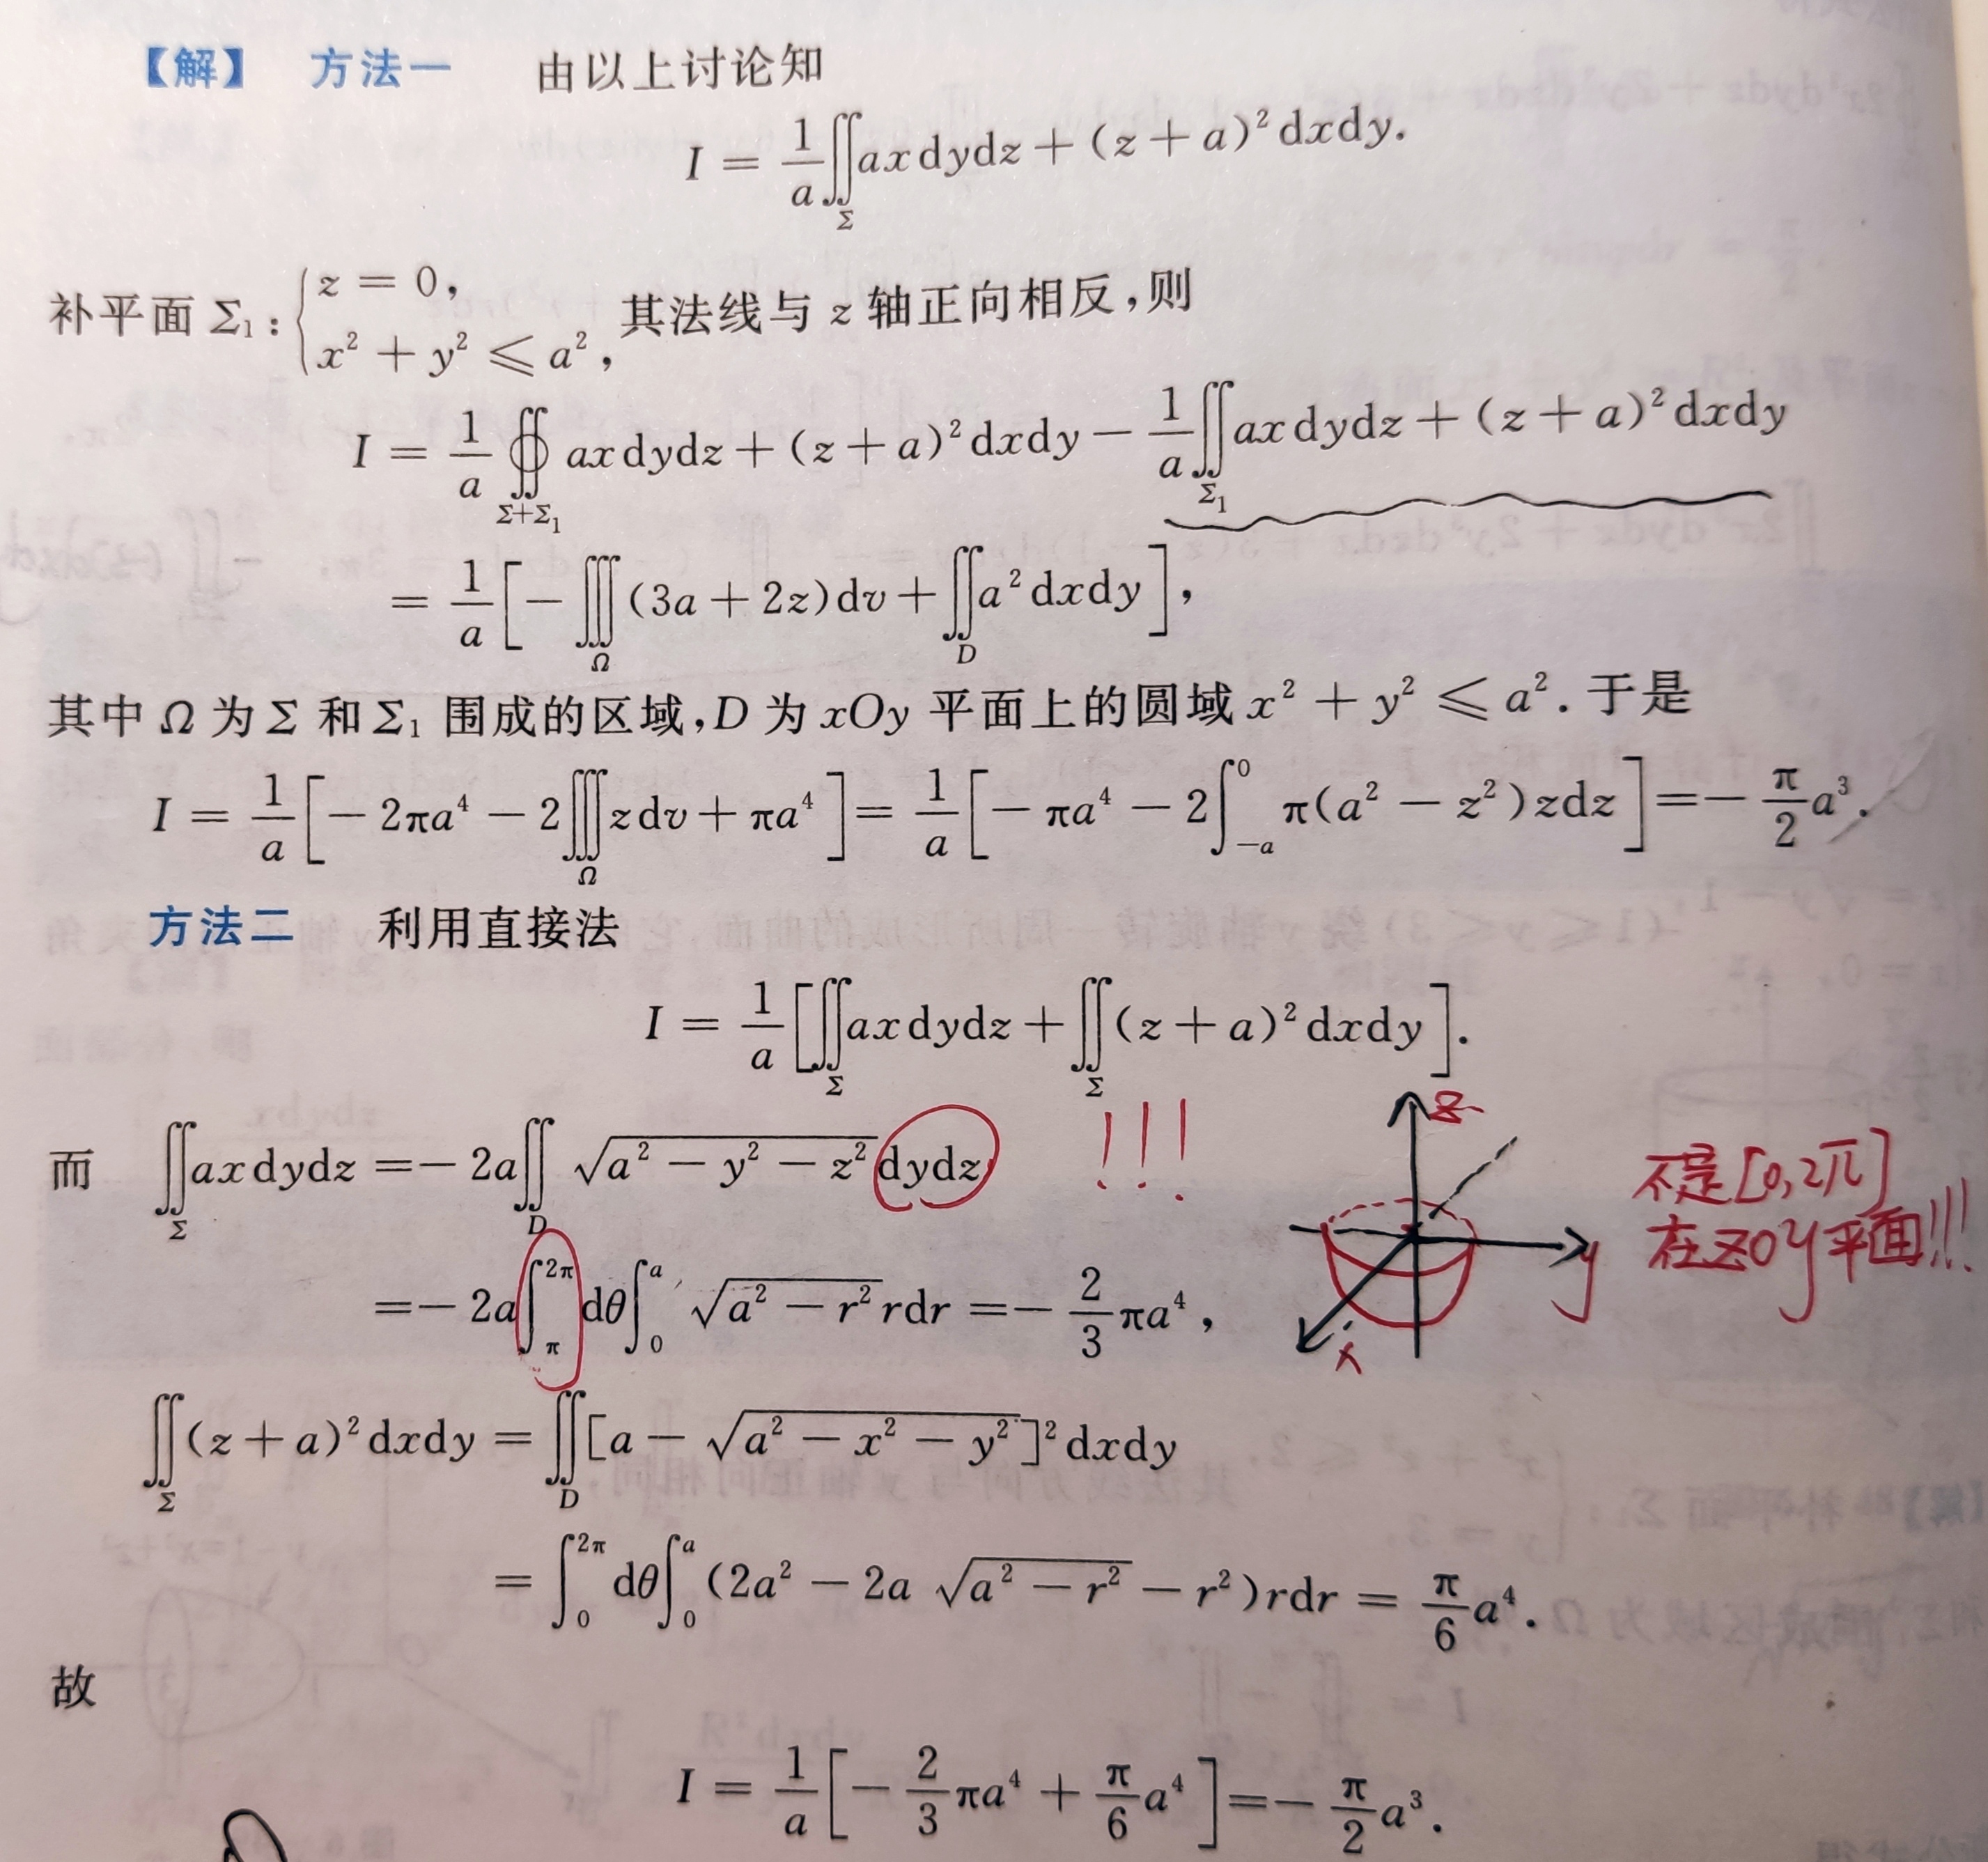 【解】 方法一 由以上讨论知
I = \frac{1}{a}\iint_{Σ} axdydz + (z + a)²dxdy.
补平面 Σ₁: { z = 0, x² + y² ≤ a², 其法线与 z 轴正向相反,则
I = \frac{1}{a}\oiint_{Σ+Σ₁} axdydz + (z + a)²dxdy − \frac{1}{a}\iint_{Σ₁} axdydz + (z + a)²dxdy
= \frac{1}{a}[− \iiint_{Ω} (3a + 2z)dv + \iint_{D} a²dxdy],
其中 Ω 为 Σ 和 Σ₁ 围成的区域,D 为 xOy 平面上的圆域 x² + y² ≤ a². 于是
I = \frac{1}{a}[− 2πa⁴ − 2\iiint_{Ω} zdv + πa⁴] = \frac{1}{a}[− πa⁴ − 2\int_{−a}^{0} π(a² − z²)zdz] = − \frac{π}{2}a³.
方法二 利用直接法
I = \frac{1}{a}[\iint_{Σ} axdydz + \iint_{Σ} (z + a)²dxdy].
而 \iint_{Σ} axdydz = − 2a\iint_{D} \sqrt{a² − y² − z²}dydz !!!
z
不是[0,2π]
在zoy平面!!!
y
x
= − 2a\int_{π}^{2π} dθ\int_{0}^{a} \sqrt{a² − r²}rdr = − \frac{2}{3}πa⁴,
\iint_{Σ} (z + a)²dxdy = \iint_{D} [a − \sqrt{a² − x² − y²}]²dxdy
= \int_{0}^{2π} dθ\int_{0}^{a} (2a² − 2a\sqrt{a² − r²} − r²)rdr = \frac{π}{6}a⁴.
故
I = \frac{1}{a}[− \frac{2}{3}πa⁴ + \frac{π}{6}a⁴] = − \frac{π}{2}a³.